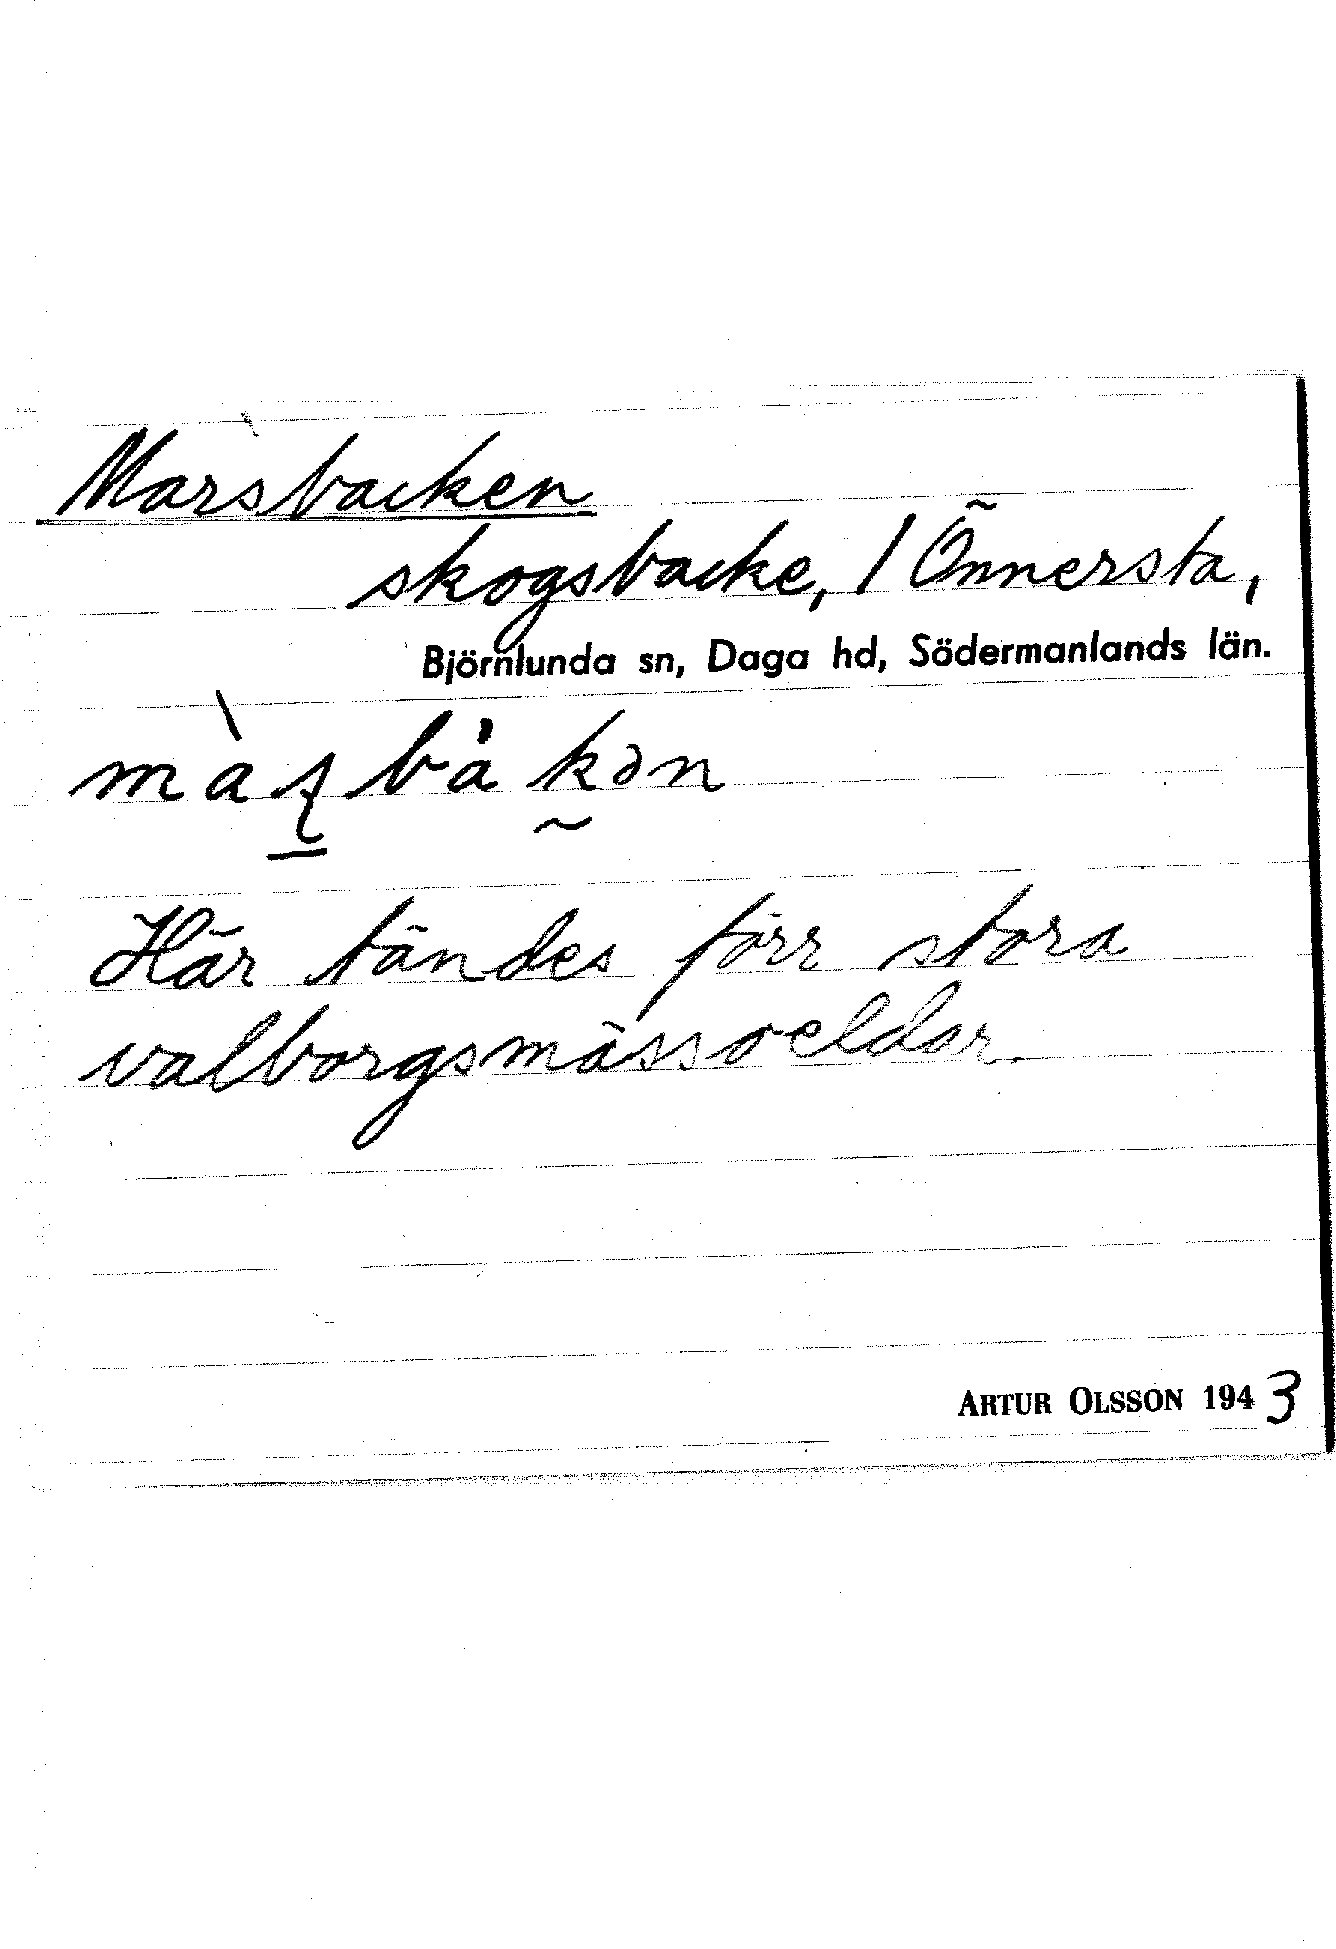 Marsbacken
skogsbacke, / Önnersta,
Björnlunda sn, Daga hd, Södermanlands län.
màʂbàkən
Här tändes förr stora
valborgsmässoeldar.
ARTUR OLSSON 1943